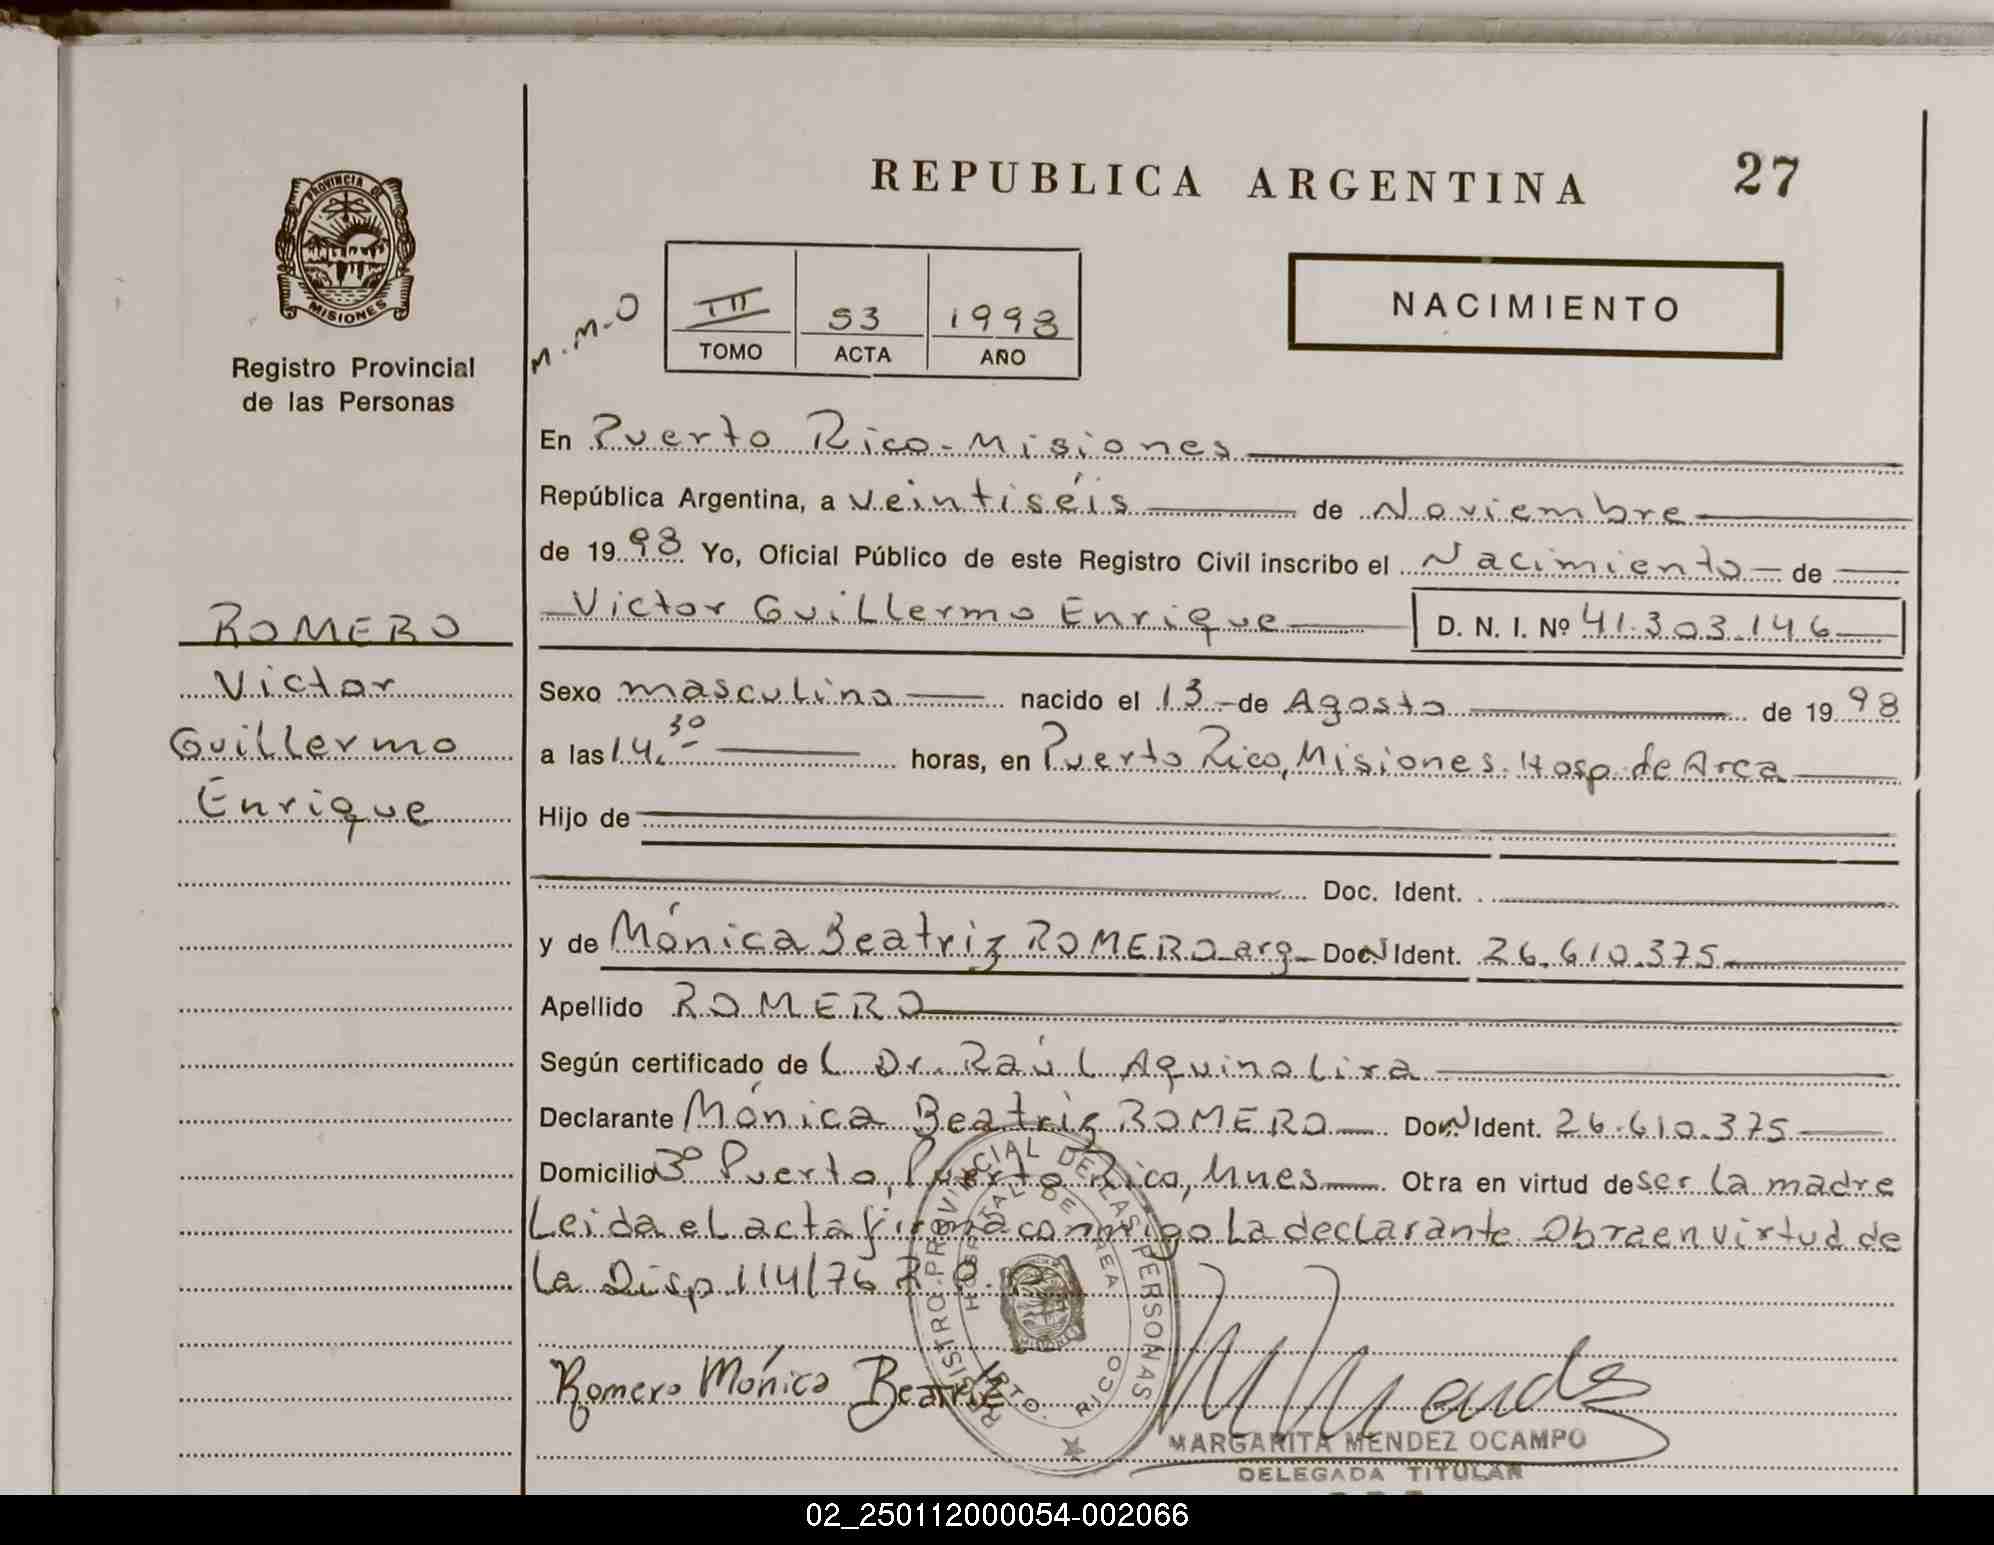 REPUBLICA ARGENTINA
27
PROVINCIA DE
MISIONES
Registro Provincial
de las Personas
M.M.O
III 53 1998
TOMO ACTA AÑO
NACIMIENTO
ROMERO
Victor
Guillermo
Enrique
En Puerto Rico - Misiones
República Argentina, a veintiséis de Noviembre
de 1998 Yo, Oficial Público de este Registro Civil inscribo el Nacimiento de
Victor Guillermo Enrique D. N. I. Nº 41.303.146
Sexo masculino nacido el 13 de Agosto de 1998
a las 14.30 horas, en Puerto Rico, Misiones. Hosp. de Area
Hijo de
Doc. Ident.
y de Mónica Beatriz ROMERO arg Doc. N Ident. 26.610.375
Apellido ROMERO
Según certificado del Dr. Raúl Aquino Lira
Declarante Mónica Beatriz ROMERO Doc. N Ident. 26.610.375
Domicilio 3º Puerto, Puerto Rico, Mnes Obra en virtud de ser la madre
Leida el acta firma conmigo la declarante Obra en virtud de
la Disp. 114/76
Romero Mónica Beatriz
REGISTRO PROVINCIAL DE LAS PERSONAS
HOSPITAL DE AREA
PTO. RICO
MARGARITA MENDEZ OCAMPO
DELEGADA TITULAR
02_250112000054-002066